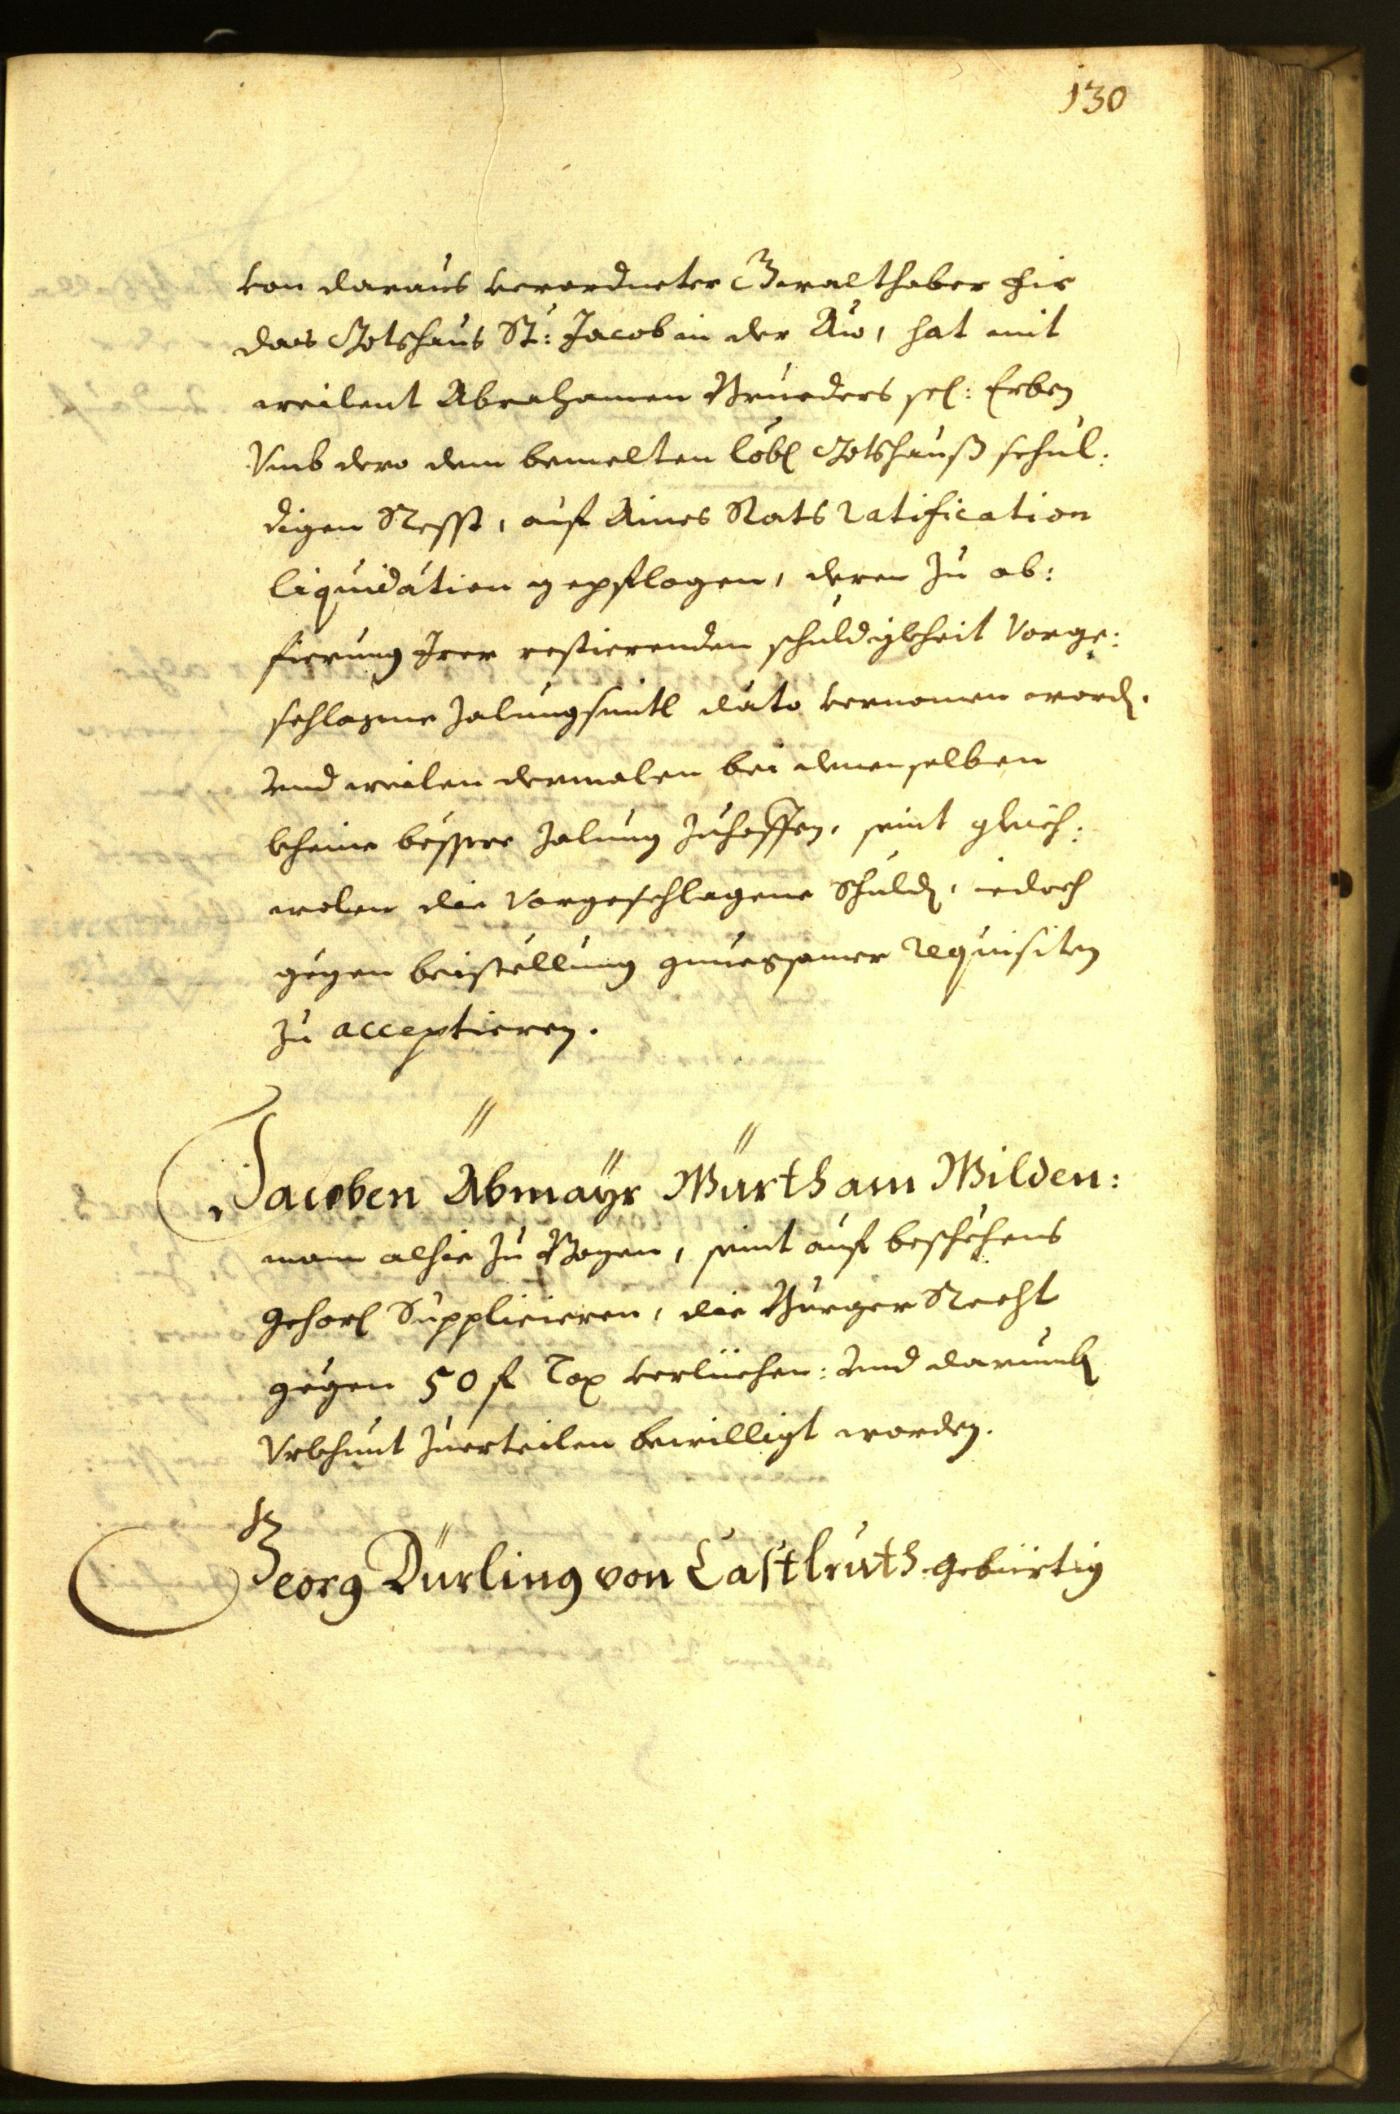 130
von daraus verordneter Gwalthaber für
das Gotshaus St: Jacob in der Aw, hat mit
weilent Abrahamen Brueders sel: Erben
Vmb dero dem bemelten löbl Gotshauß schul:
digen Resst, auf Aines Rats ratification
liquidation gepflogen, deren zu ab:
fierung Irer restierenden schuldigkheit Vorge:
schlagne zalungsmitl dato vernomen word.
Und weilen dermalen bei denenselben
kheine bössere zalung zuhoffen, seint gleich:
wolen die Vorgeschlagene Schuld, iedoch
gegen beistellung gnuegsamer requisiten
zu acceptieren.
Jacoben Abmayr Würth am Wilden:
man alhie zu Bozen, seint auf beschehens
gehorl Supplicieren, die Burger Recht
gegen 50 f Tax verlichen: Und darumb
Vrkhunt zuerteilen bewilligt worden.
Georg Dürling von Castlruth gebürtig